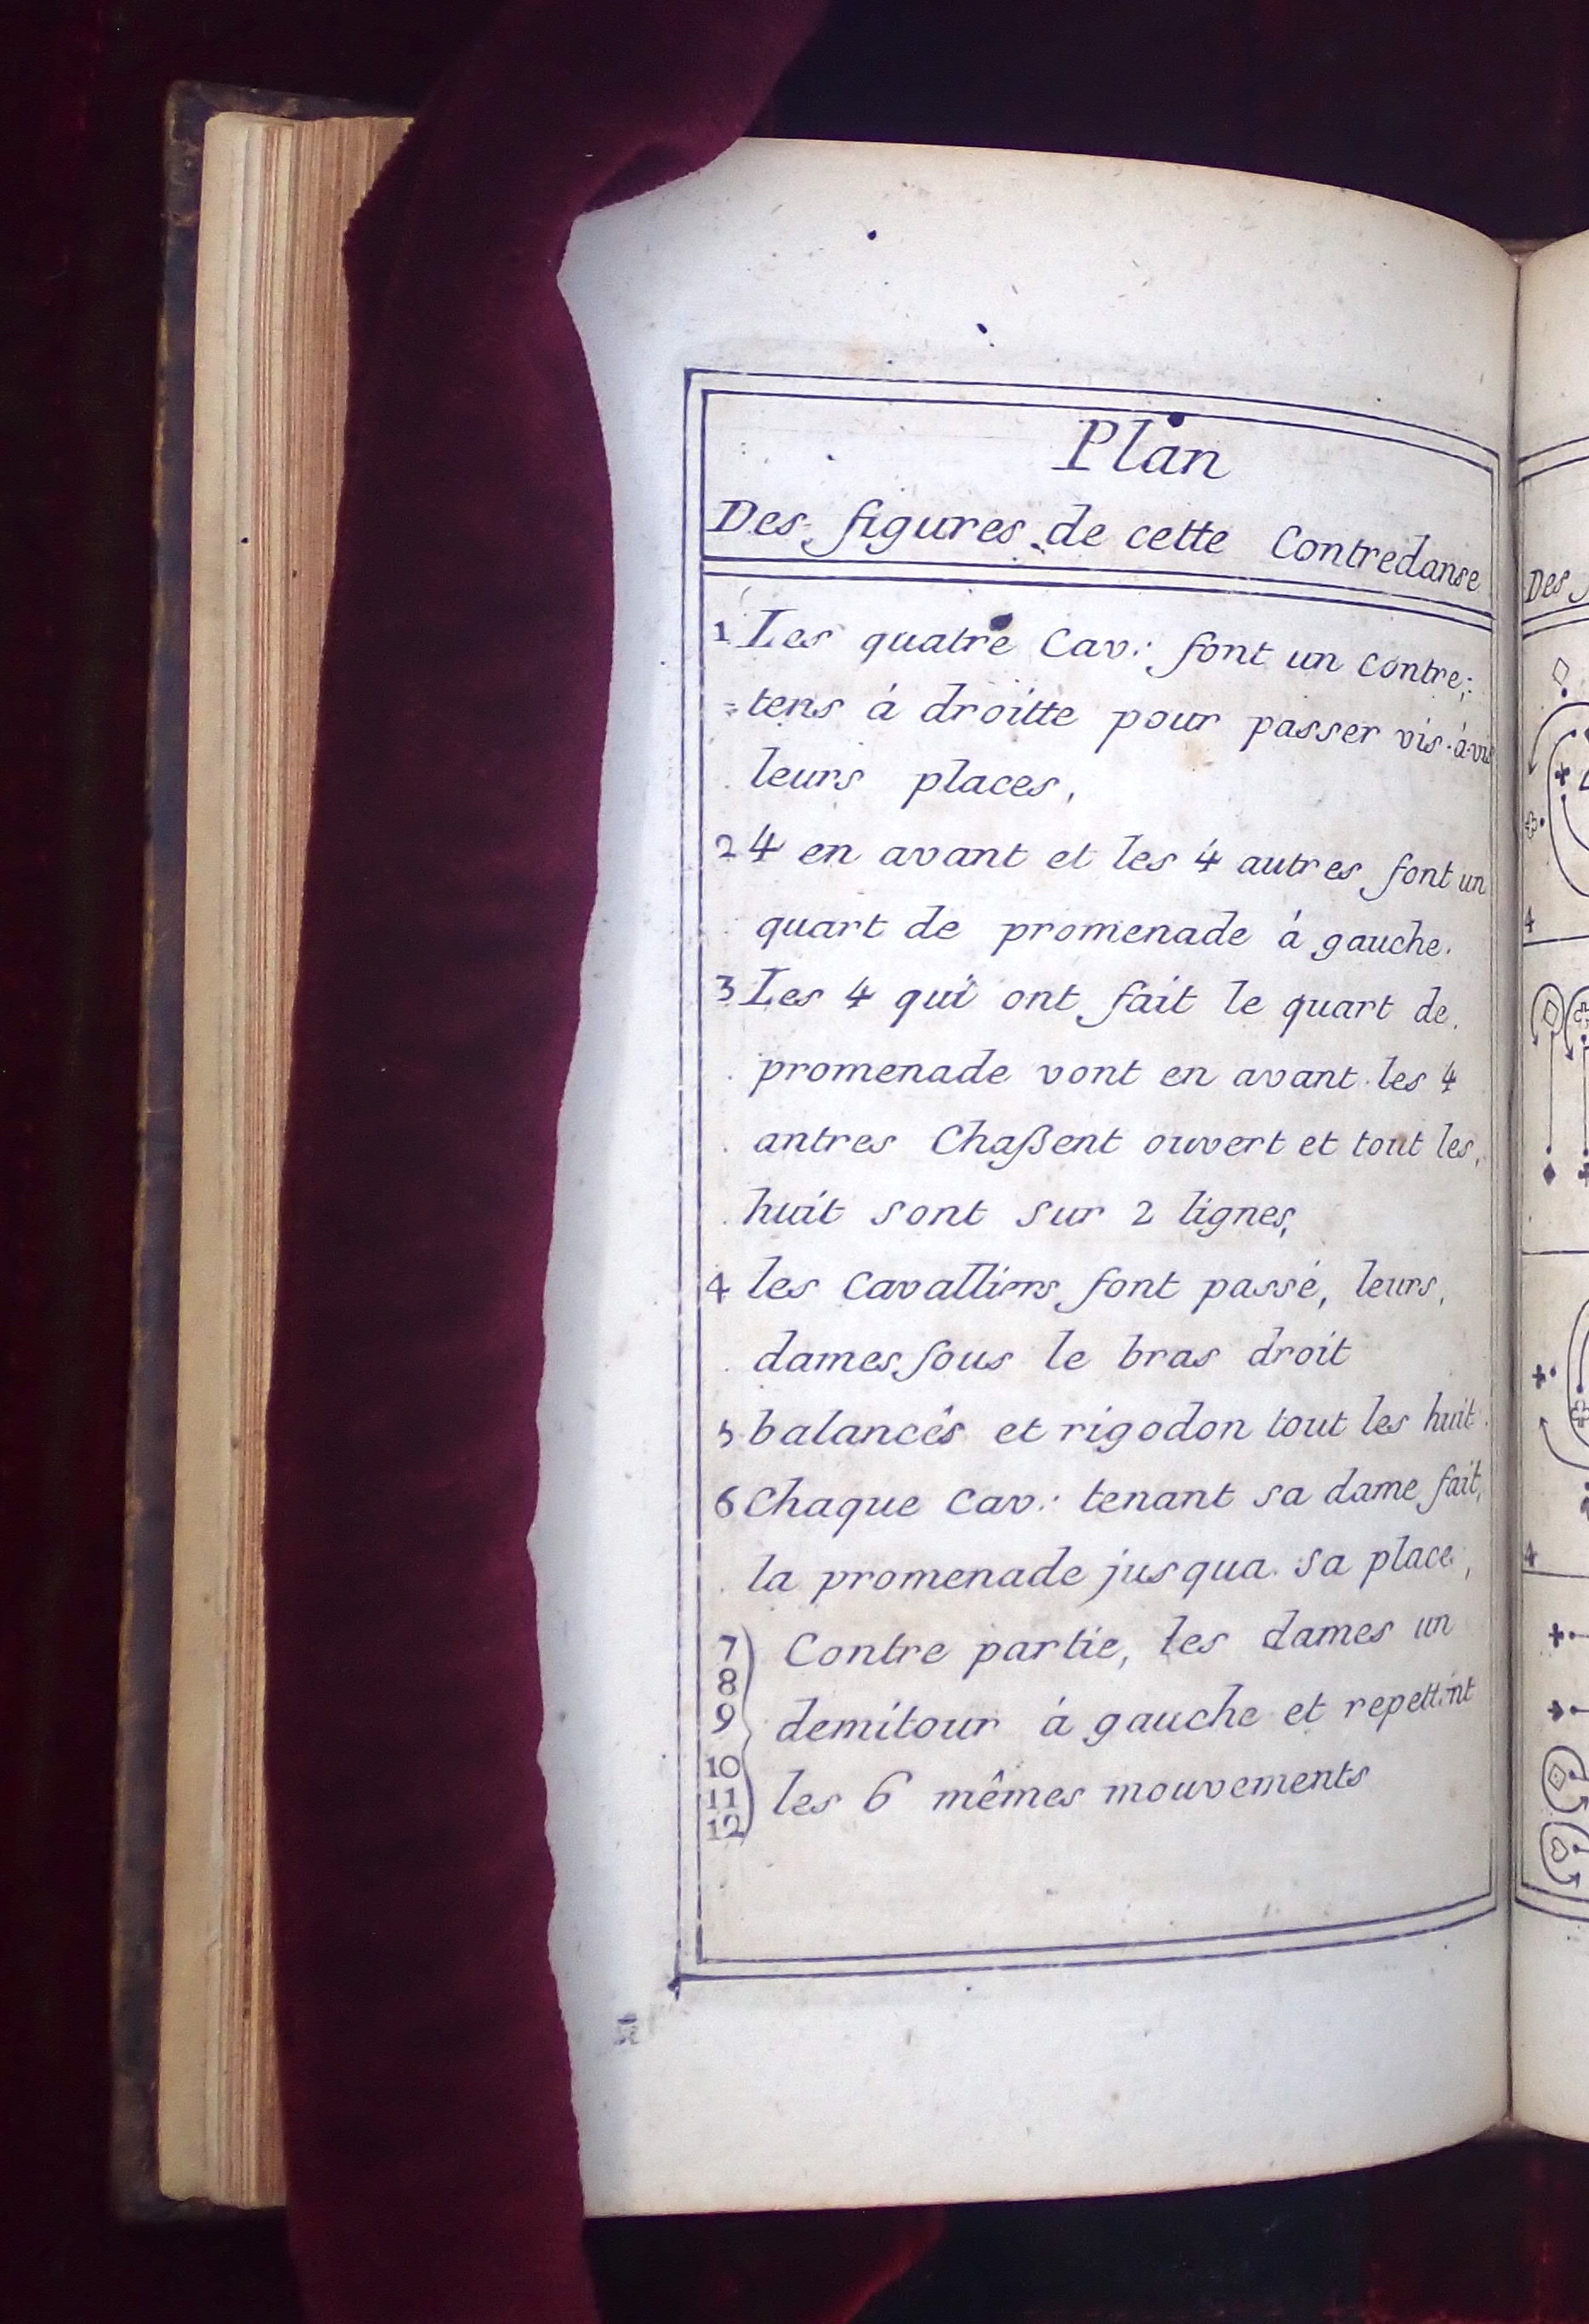 Plan
Des figures de cette Contredanse
1 Les quatre Cav: font un Contre;
=tens á droitte pour passer vis-á-vis
leurs places,
2 4 en avant et les 4 autres font un
quart de promenade á gauche.
3 Les 4 qui ont fait le quart de
promenade vont en avant les 4
antres Chaßent ouvert et tout les
huit sont sur 2 lignes,
4 les Cavalliers font passé, leurs,
dames sous le bras droit
5 balancés et rigodon tout les huit
6 Chaque Cav: tenant sa dame fait,
la promenade jusqua sa place,
7 Contre partie, les dames un
8
9 demitour á gauche et repettint
10
11 les 6 mêmes mouvements
12
Des
4
4